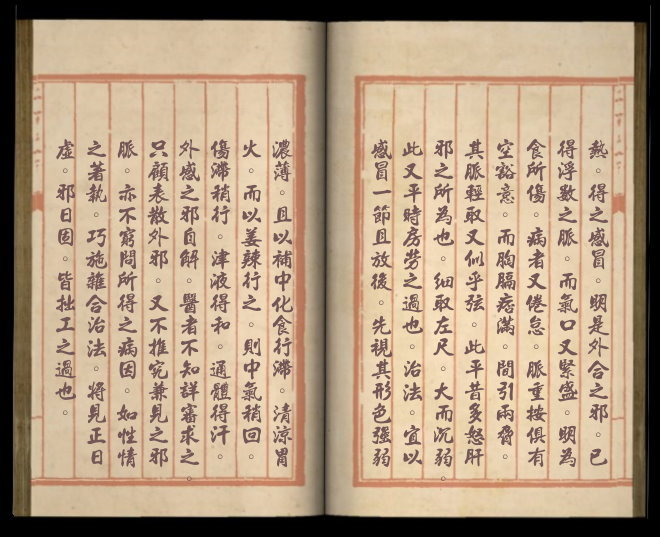 熱。得之感冒。明是外合之邪。已
得浮數之脈。而氣口又緊盛。明為
食所傷。病者又倦怠。脈重按俱有
空豁意。而胸膈痞滿。間引兩脅。
其脈輕取又似乎弦。此平昔多怒肝
邪之所為也。細取左尺。大而沉弱。
此又平時房勞之過也。治法。宜以
感冒一節且放後。先視其形色強弱
濃薄。且以補中化食行滯。清涼胃
火。而以姜辣行之。則中氣稍回。
傷滯稍行。津液得和。通體得汗。
外感之邪自解。醫者不知詳審求之。
只顧表散外邪。又不推究兼見之邪
脈。亦不窮問所得之病因。如性情
之著執。巧施雜合治法。將見正日
虛。邪日固。皆拙工之過也。